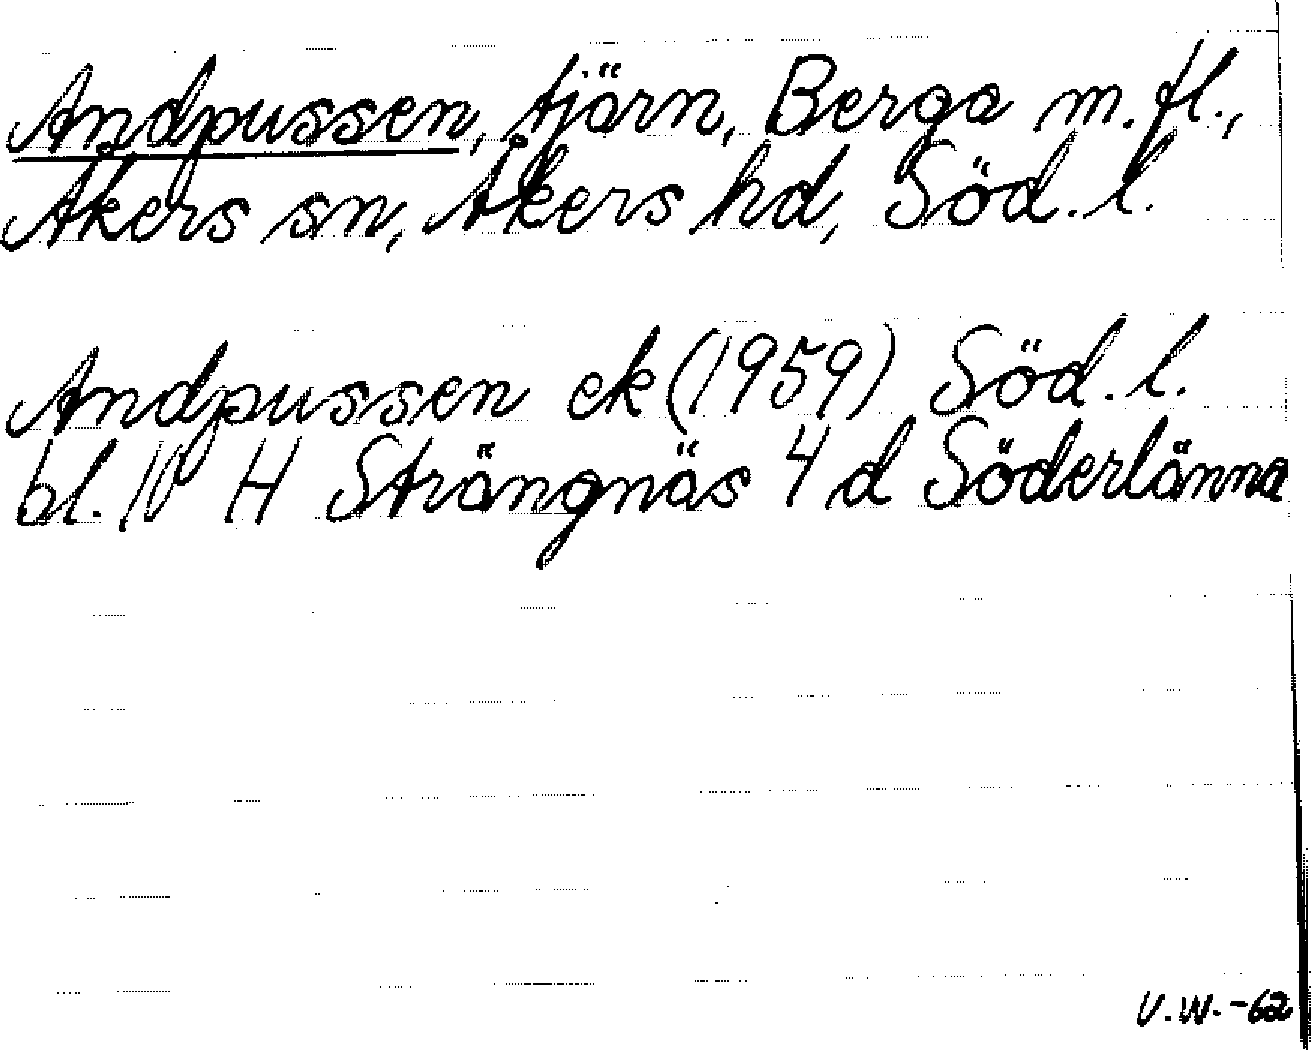 Andpussen, tjärn, Berga m. fl.,
Åkers sn, Åkers hd, Söd. l.
Andpussen ek (1959) Söd. l.
bl. 10 H Strängnäs 4 d Söderlänna
V.W.-62